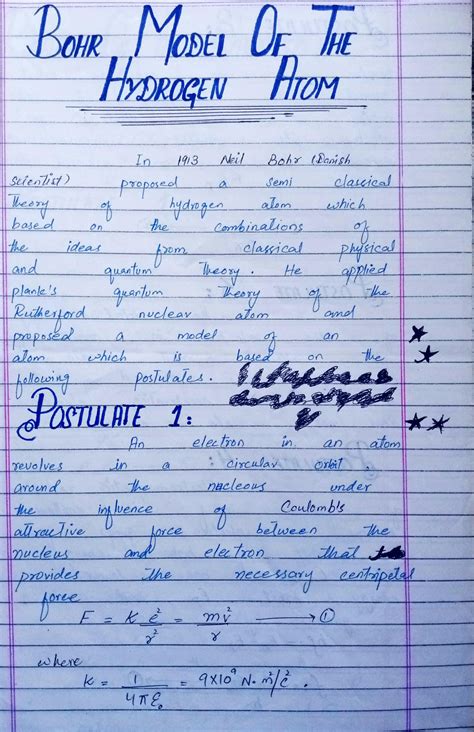 BOHR MODEL OF THE
HYDROGEN ATOM
In 1913 Neil Bohr (Danish
scientist) proposed a semi classical
Theory of hydrogen atom which
based on the combinations of
the ideas from classical physical
and quantum Theory. He applied
plank's quantum Theory of the
Rutherford nuclear atom and
proposed a model of an
atom which is based on the
following postulates.
POSTULATE 1:
An electron in an atom
revolves in a circular orbit
around the nucleous under
the influence of Coulomb's
attractive force between the
nucleus and electron that
provides the necessary centripetal
force
F = K e²/r² = mv²/r → ①
where
K = 1/4πξ₀ = 9×10⁹ N·m²/c².